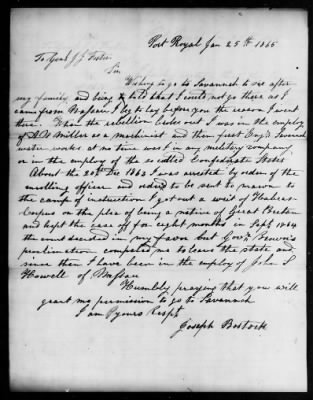 Port Royal Jan 25th 1865
To Genl J. J. Foster
Sir
Wishing to go to Savannah to see after
my family and being told that I could not go there as I
came from Nassau I beg to lay before you the reason I went
there. When the rebellion broke out I was in the employ
of A N Miller as a machinist and then first Eng'r Savanah
water works at no time was I in any military company,
or in the employ of the so called Confederate States
About the 20th Dec 1863 I was arrested by order of the
enrolling officer and ordered to be sent to macon to
the camp of instruction I got out a writ of Habeas
Corpus on the plea of being a native of Great Britan
and kept the case off for eight months in Sept 1864
the court decided in my favor but Gov'r Brown's
proclimation compelled me to leave the state and
since then I have been in the employ of John S
Howell of Nassau
Humbly praying that you will
grant me permission to go to Savannah
I am yours Respt
Joseph Bostock